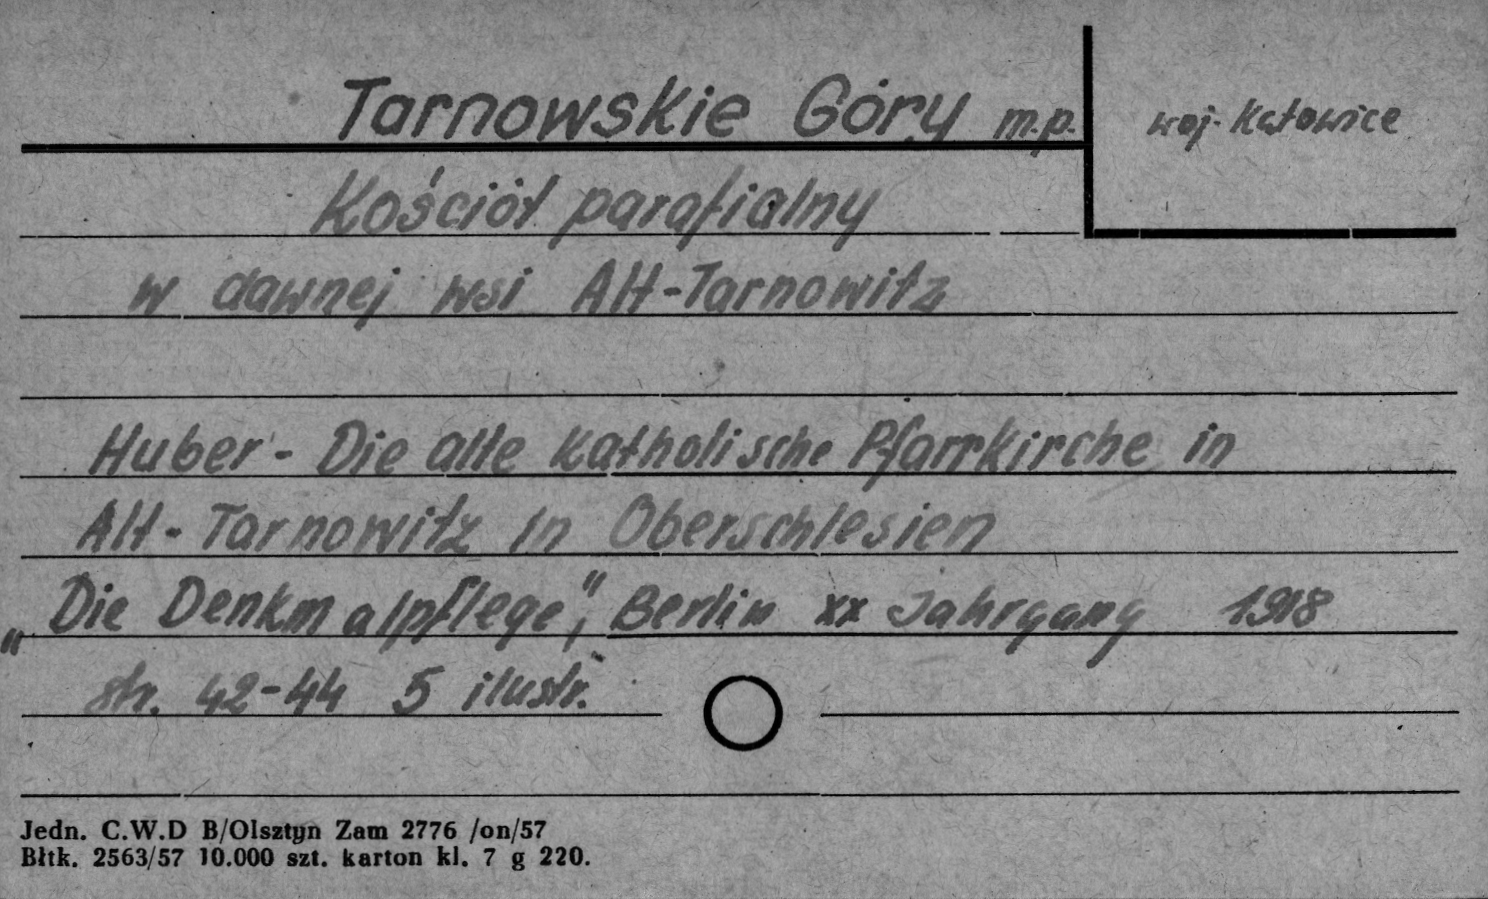 Tarnowskie Góry m.p.
woj. Katowice
Kościół parafialny
w dawnej wsi Alt-Tarnowitz
Huber - Die alte katholische Pfarrkirche in
Alt-Tarnowitz in Oberschlesien
„Die Denkmalpflege", Berlin XX Jahrgang 1918
str. 42-44 5 ilustr.
Jedn. C.W.D B/Olsztyn Zam 2776 /on/57
Błtk. 2563/57 10.000 szt. karton kl. 7 g 220.